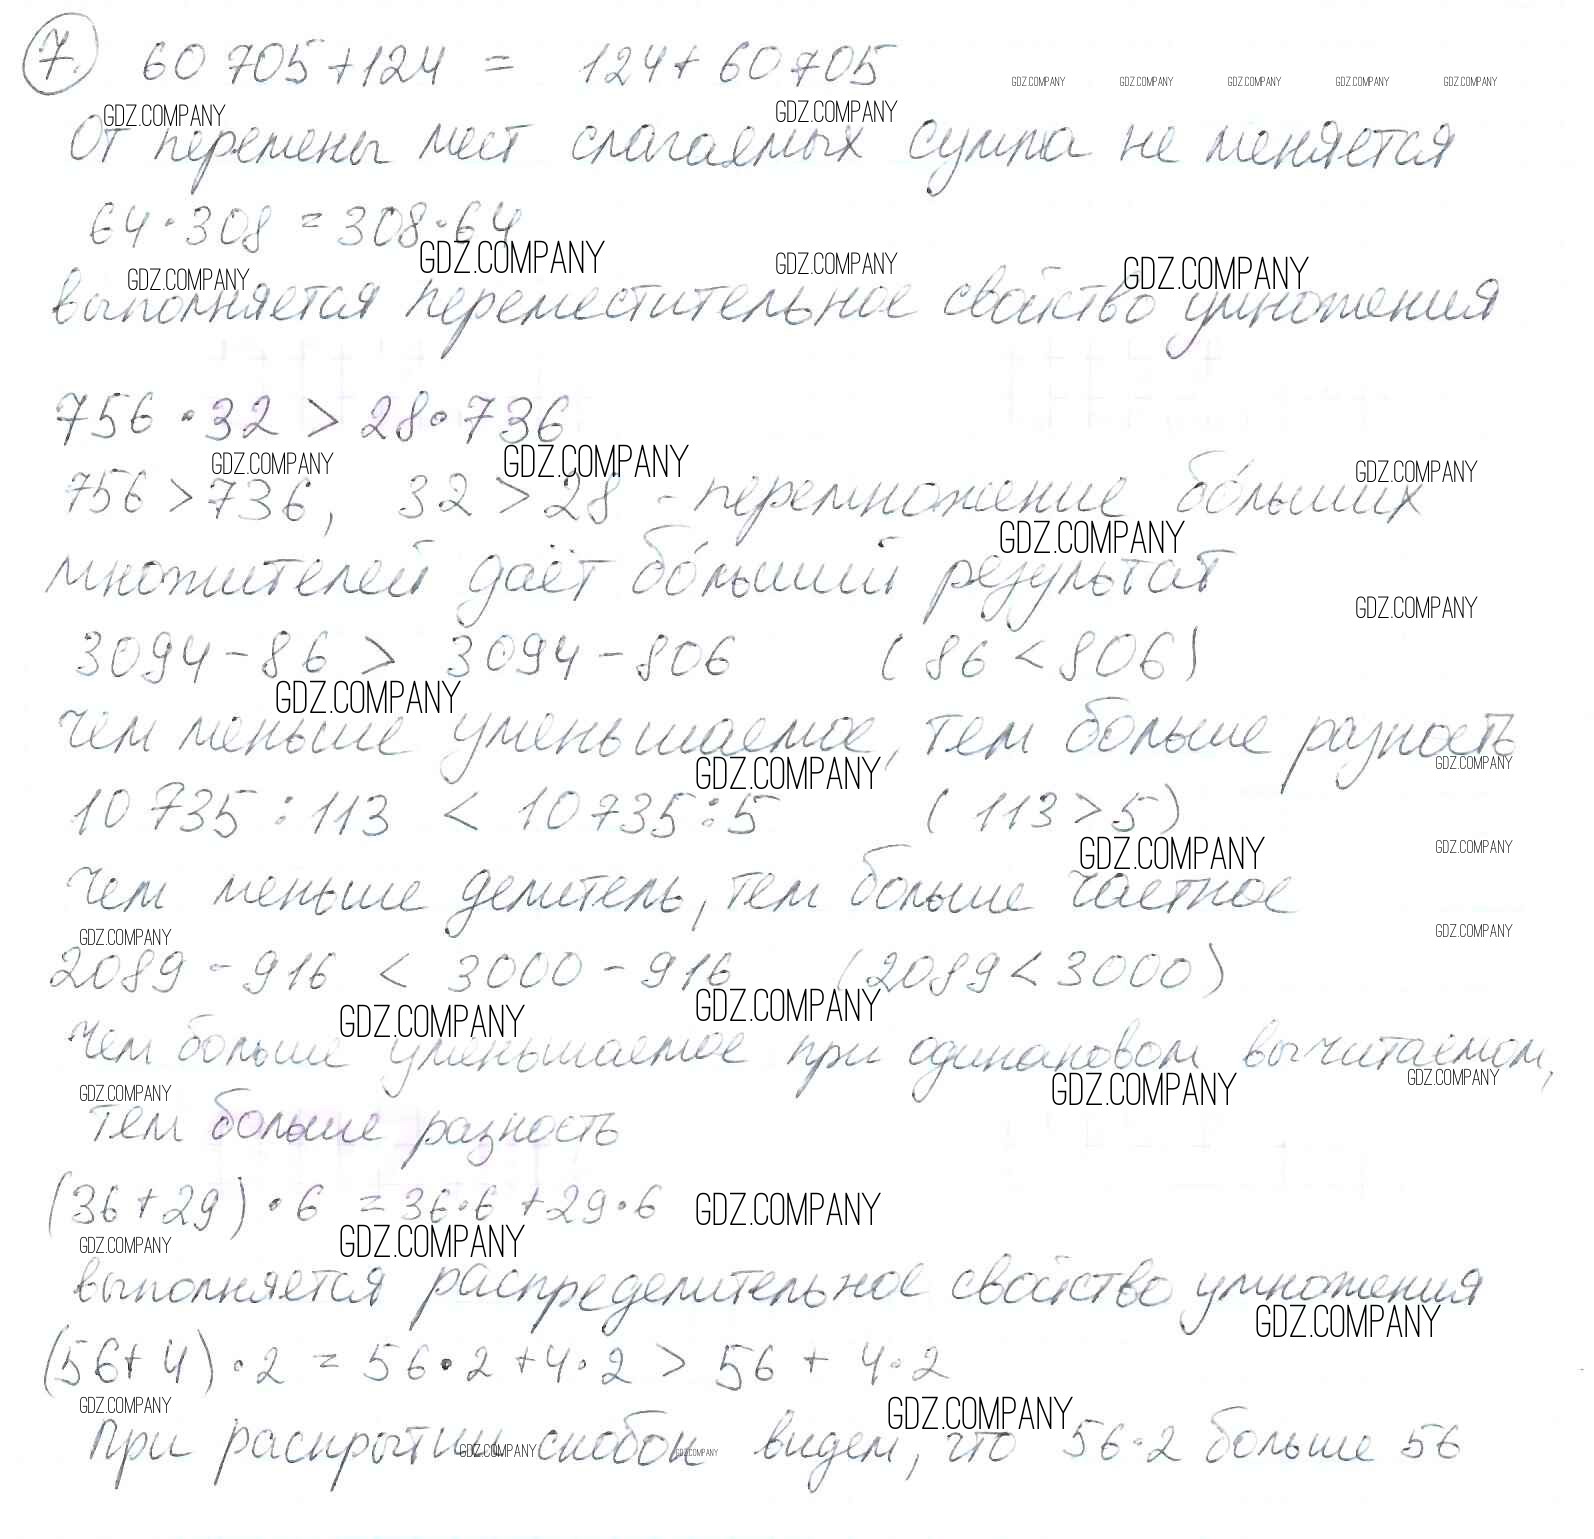 7. 60 705 + 124 = 124 + 60 705
GDZ.COMPANY GDZ.COMPANY GDZ.COMPANY GDZ.COMPANY GDZ.COMPANY
GDZ.COMPANY GDZ.COMPANY
От перемены мест слагаемых сумма не меняется
64 · 308 = 308 · 64
GDZ.COMPANY GDZ.COMPANY GDZ.COMPANY GDZ.COMPANY
выполняется переместительное свойство умножения
756 · 32 > 28 · 736
GDZ.COMPANY GDZ.COMPANY GDZ.COMPANY
756 > 736, 32 > 28 - перемножение бо́льших
GDZ.COMPANY
множителей даёт бо́льший результат
GDZ.COMPANY
3094 - 86 > 3094 - 806 (86 < 806)
GDZ.COMPANY
чем меньше уменьшаемое, тем больше разность
GDZ.COMPANY GDZ.COMPANY
10 735 : 113 < 10 735 : 5 (113 > 5)
GDZ.COMPANY GDZ.COMPANY
чем меньше делитель, тем больше частное
GDZ.COMPANY GDZ.COMPANY
2089 - 916 < 3000 - 916 (2089 < 3000)
GDZ.COMPANY GDZ.COMPANY
Чем больше уменьшаемое при одинаковом вычитаемом,
GDZ.COMPANY GDZ.COMPANY GDZ.COMPANY
тем больше разность
(36 + 29) · 6 = 36 · 6 + 29 · 6 GDZ.COMPANY
GDZ.COMPANY GDZ.COMPANY
выполняется распределительное свойство умножения
GDZ.COMPANY
(56 + 4) · 2 = 56 · 2 + 4 · 2 > 56 + 4 · 2
GDZ.COMPANY GDZ.COMPANY
При раскрытии скобок видем, что 56 · 2 больше 56
GDZ.COMPANY GDZ.COMPANY